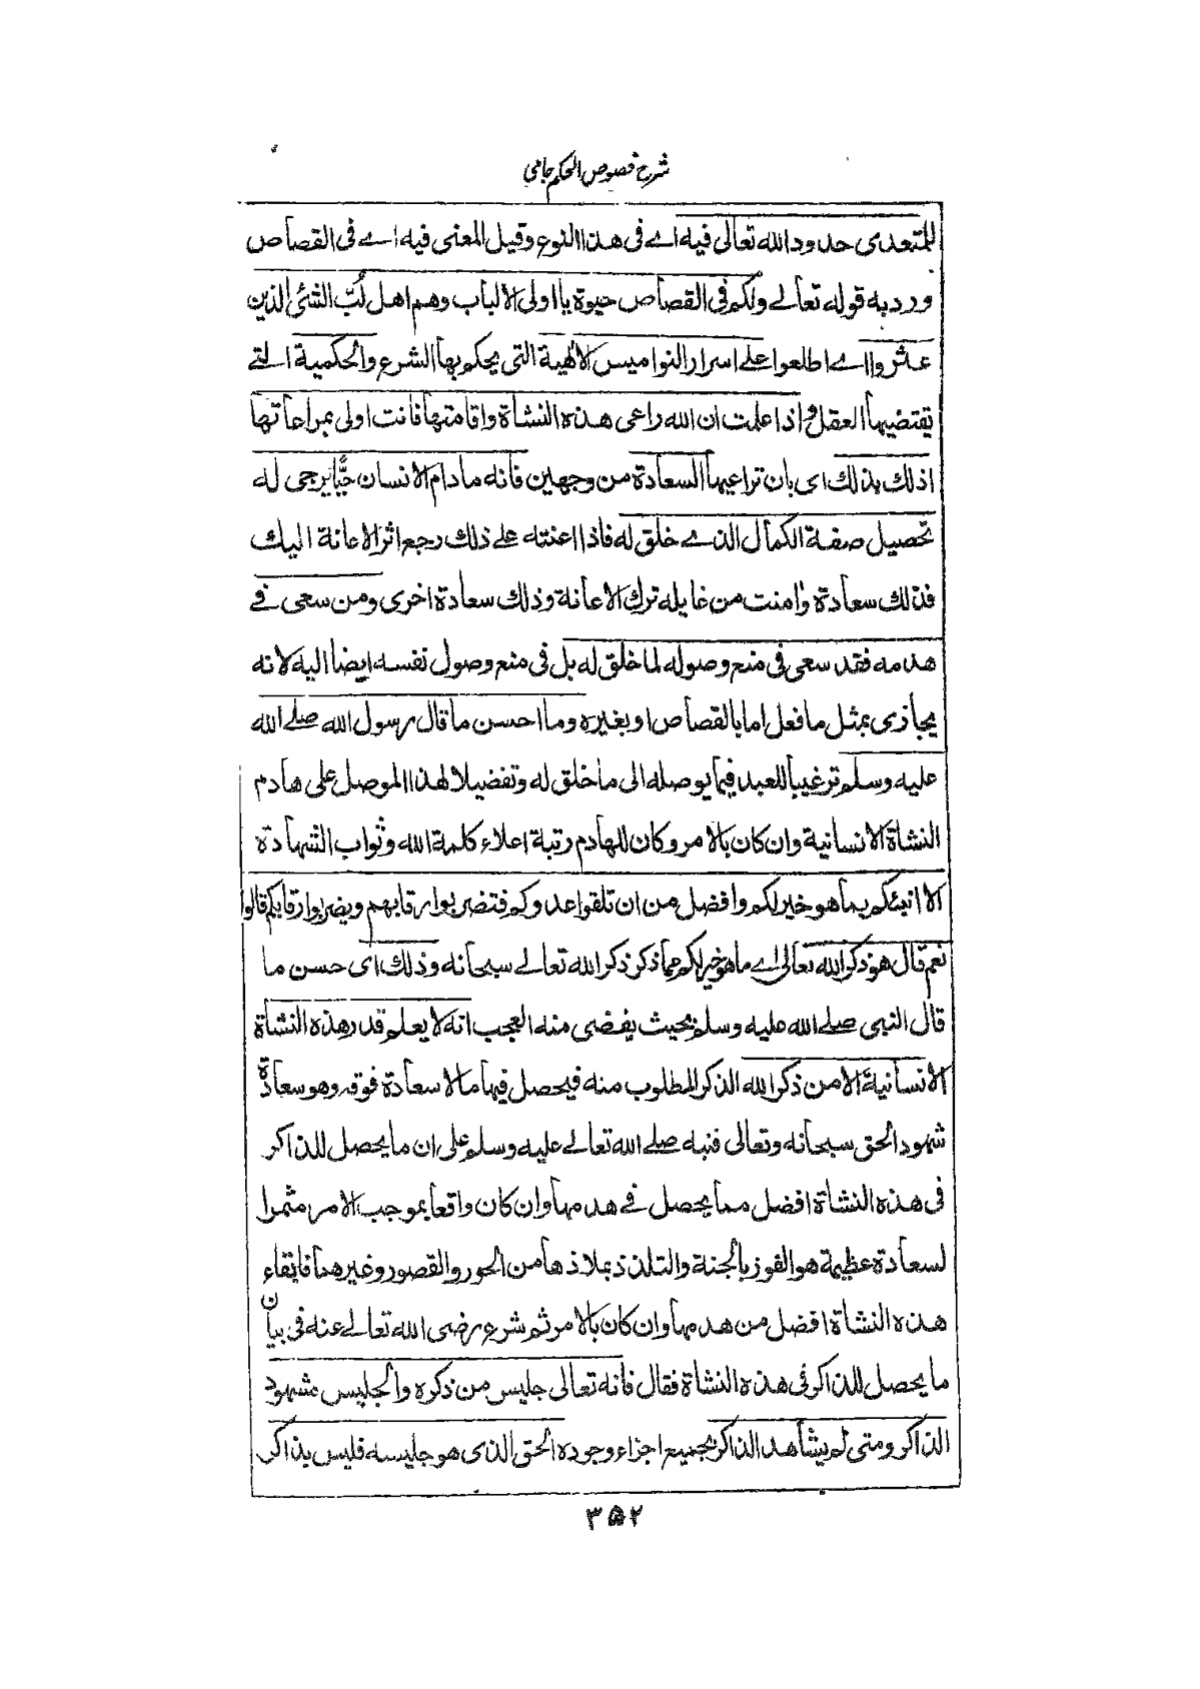 شرح فصوص الحكم جامي
للمتعدى حدود الله تعالى فيه اے فى هذا النوع وقيل المعنى فيه اے فى القصاص
ورد به قوله تعالے ولكم فى القصاص حيوة يا اولى الالباب وهم اهل لُبّ الشئ الذين
عثروا اے اطلعوا علے اسرار النواميس الالهية التى يحكم بها الشرع والحكمية التے
يقتضيها العقل واذا علمت ان الله راعى هذه النشاة واقامتها فانت اولى بمراعاتها
اذ لك بذلك اى بان تراعيها السعادة من وجهين فانه مادام الانسان حيًّا يرجى له
تحصيل صفة الكمال الذے خلق له فاذا اعنته علے ذلك رجع اثر الاعانة اليك
فذلك سعادة وامنت من غايله ترك الاعانة وذلك سعادة اخرى ومن سعى فے
هدمه فقد سعى فى منع وصوله لما خلق له بل فى منع وصول نفسه ايضا اليه لانه
يجازى بمثل ما فعل اما بالقصاص او بغيره وما احسن ما قال رسول الله صلے الله
عليه وسلم ترغيبا للعبد فيما يوصله الى ما خلق له وتفضيلا لهذا الموصل على هادم
النشاة الانسانية وان كان بالامر وكان للهادم رتبة اعلاء كلمة الله وثواب الشهادة
الا انبئكم بما هو خير لكم وافضل من ان تلقوا عدوكم فتضربوا رقابهم ويضربوا رقابكم قالوا
نعم قال هو ذكر الله تعالى اے ما هو خير لكم مما ذكر ذكر الله تعالے سبحانه وذلك اى حسن ما
قال النبى صلے الله عليه وسلم بحيث يفضى منه العجب انه لا يعلم قدر هذه النشاة
الانسانية الا من ذكر الله الذكر المطلوب منه فيحصل فيها ما لا سعادة فوقه وهو سعادة
شهود الحق سبحانه وتعالى فنبه صلے الله تعالے عليه وسلم على ان ما يحصل للذاكر
فى هذه النشاة افضل مما يحصل فے هدمها وان كان واقعا بموجب الامر مثمرا
لسعادة عظيمة هو الفوز بالجنة والتلذذ بملاذها من الحور والقصور وغيرهما فابقاء
هذه النشاة افضل من هدمها وان كان بالامر ثم شرع رضى الله تعالے عنه فى بيان
ما يحصل للذاكر فى هذه النشاة فقال فانه تعالى جليس من ذكره والجليس مشهود
الذاكر ومتى لم يشاهد الذاكر بجميع اجزاء وجوده الحق الذى هو جليسه فليس بذاكر
۳۵۲